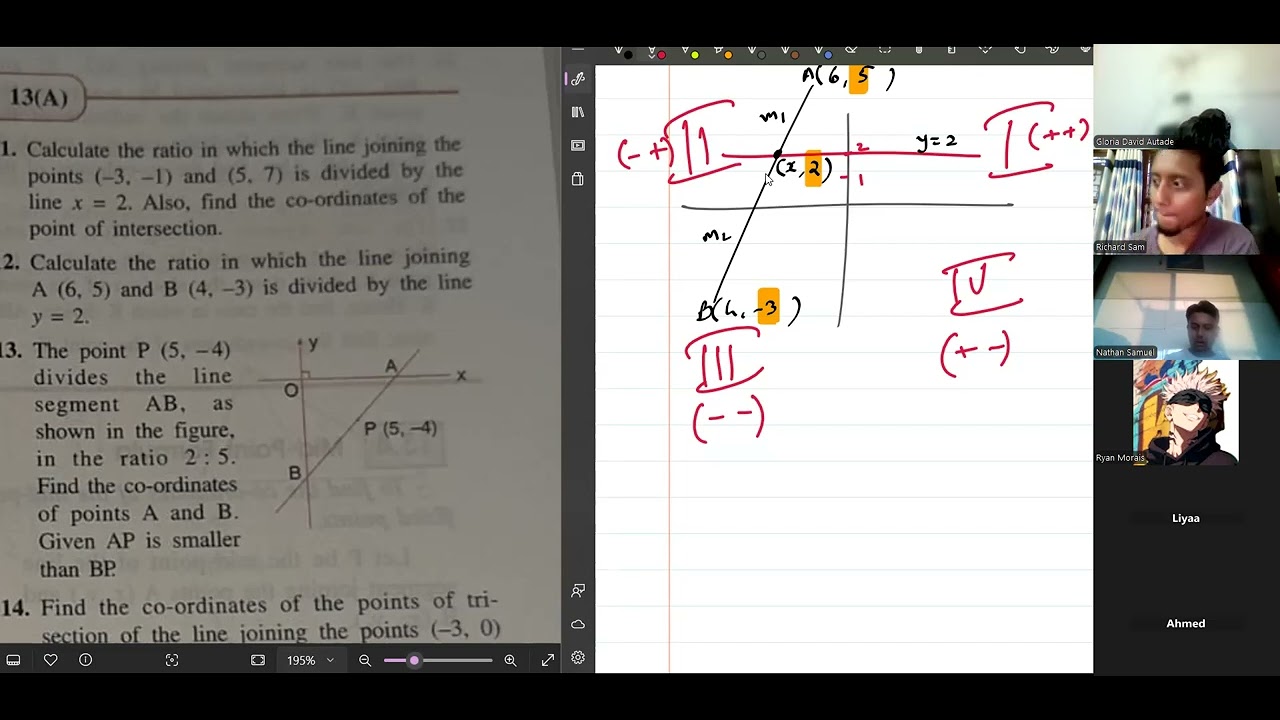 13(A)
1. Calculate the ratio in which the line joining the
points (−3, −1) and (5, 7) is divided by the
line x = 2. Also, find the co-ordinates of the
point of intersection.
2. Calculate the ratio in which the line joining
A (6, 5) and B (4, −3) is divided by the line
y = 2.
13. The point P (5, −4)
divides the line
segment AB, as
shown in the figure,
in the ratio 2 : 5.
Find the co-ordinates
of points A and B.
Given AP is smaller
than BP.
y
A
x
O
P (5, −4)
B
14. Find the co-ordinates of the points of tri-
section of the line joining the points (−3, 0)
195%
A(6, 5)
m1
(- +) II
2
y=2
I (++)
(x, 2)
1
m2
B(4, -3)
III
(- -)
IV
(+ -)
Gloria David Autade
Richard Sam
Nathan Samuel
Ryan Morais
Liyaa
Ahmed